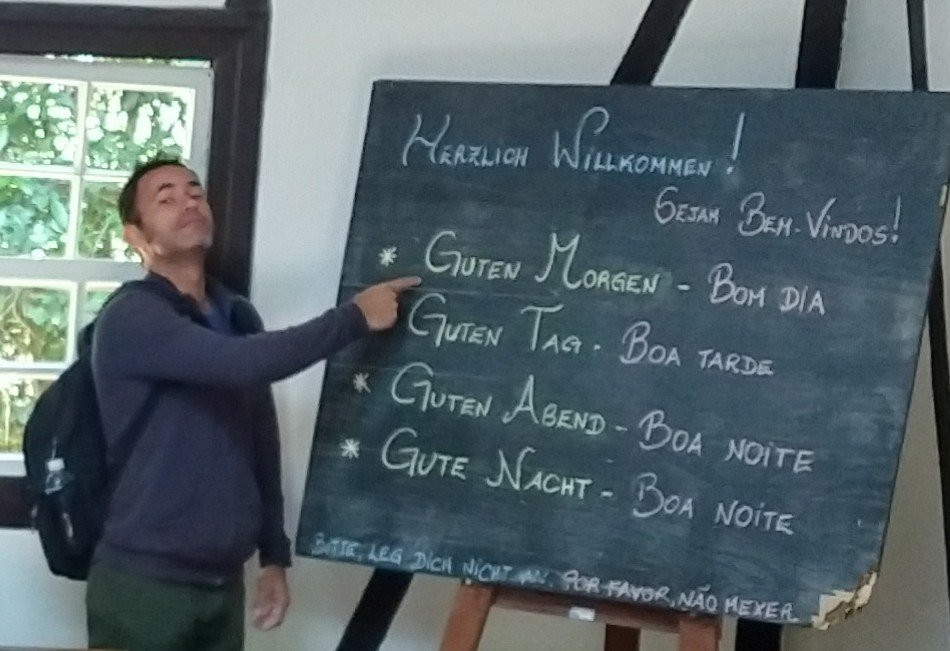 HERZLICH WILLKOMMEN!
SEJAM BEM-VINDOS!
* GUTEN MORGEN - BOM DIA
GUTEN TAG - BOA TARDE
* GUTEN ABEND - BOA NOITE
* GUTE NACHT - BOA NOITE
BITTE, LEG DICH NICHT AN. POR FAVOR, NÃO MEXER